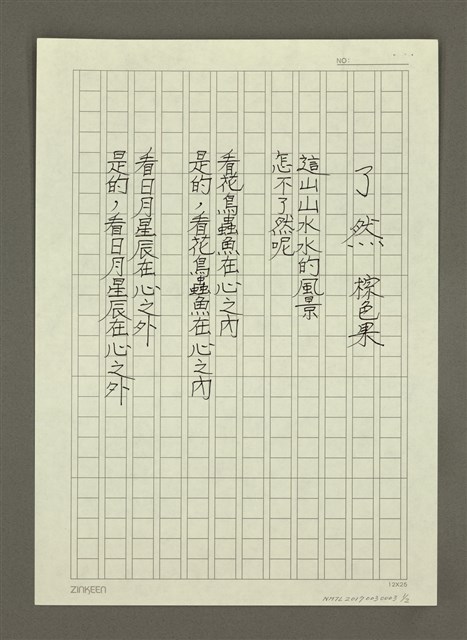 NO:
了然　棕色果
這山山水水的風景
怎不了然呢
看花鳥蟲魚在心之內
是的，看花鳥蟲魚在心之內
看日月星辰在心之外
是的，看日月星辰在心之外
ZINKEEN
12X25
NMTL 20090030009 1/2